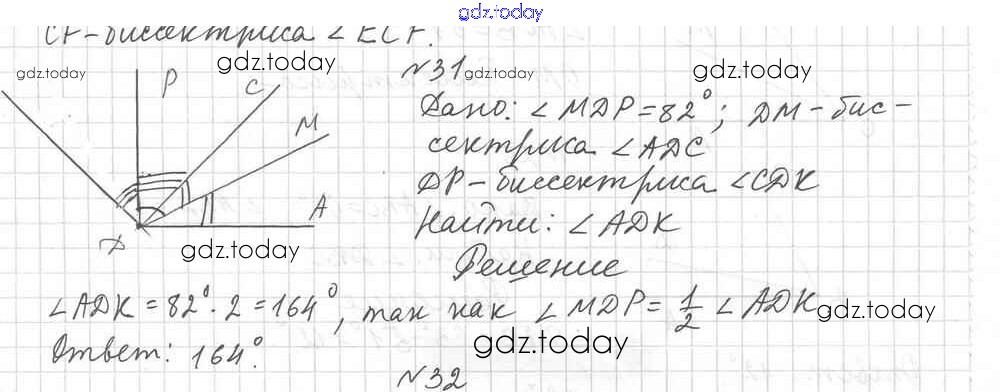 gdz.today
CF-биссектриса ∠ECF.
gdz.today
gdz.today
P
C
M
A
D
gdz.today
№31 gdz.today gdz.today
Дано: ∠MDP=82°; DM-бис-
сектриса ∠ADC
DP-биссектриса ∠CDK
Найти: ∠ADK
Решение
∠ADK = 82°·2=164°, так как ∠MDP= 1/2 ∠ADK gdz.today
Ответ: 164°. gdz.today
№32